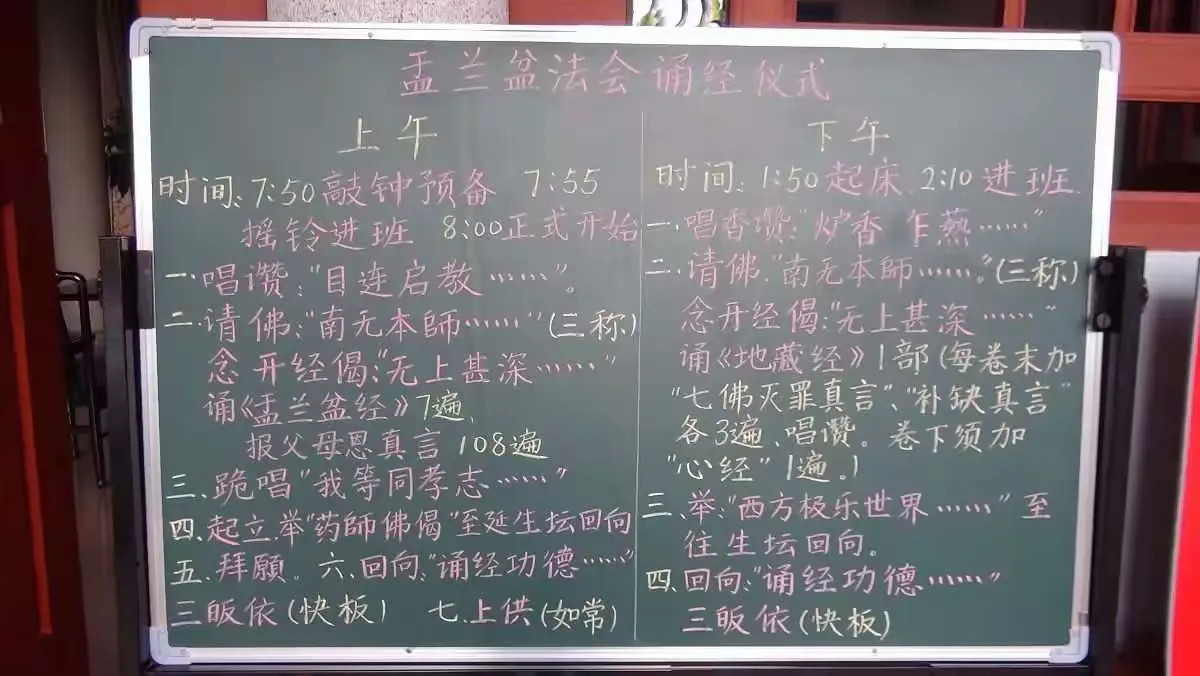 盂兰盆法会诵经仪式
上午
时间：7:50敲钟预备 7:55
摇铃进班 8:00正式开始
一.唱讚："目连启教……"。
二.请佛："南无本師……"（三称）
念开经偈："无上甚深……"
诵《盂兰盆经》7遍、
报父母恩真言108遍
三、跪唱"我等同孝志……"
四、起立.举"药師佛偈"至延生坛回向
五、拜願。六、回向："诵经功德……"
三皈依（快板） 七.上供（如常）
下午
时间：1:50起床、2:10进班
一.唱香讚："炉香乍爇……"
二.请佛："南无本師……。"（三称）
念开经偈："无上甚深……"
诵《地藏经》1部（每卷末加
"七佛灭罪真言"、"补缺真言"
各3遍、唱讚。卷下须加
"心经"1遍。）
三、举："西方极乐世界……"至
往生坛回向。
四.回向："诵经功德……"
三皈依（快板）